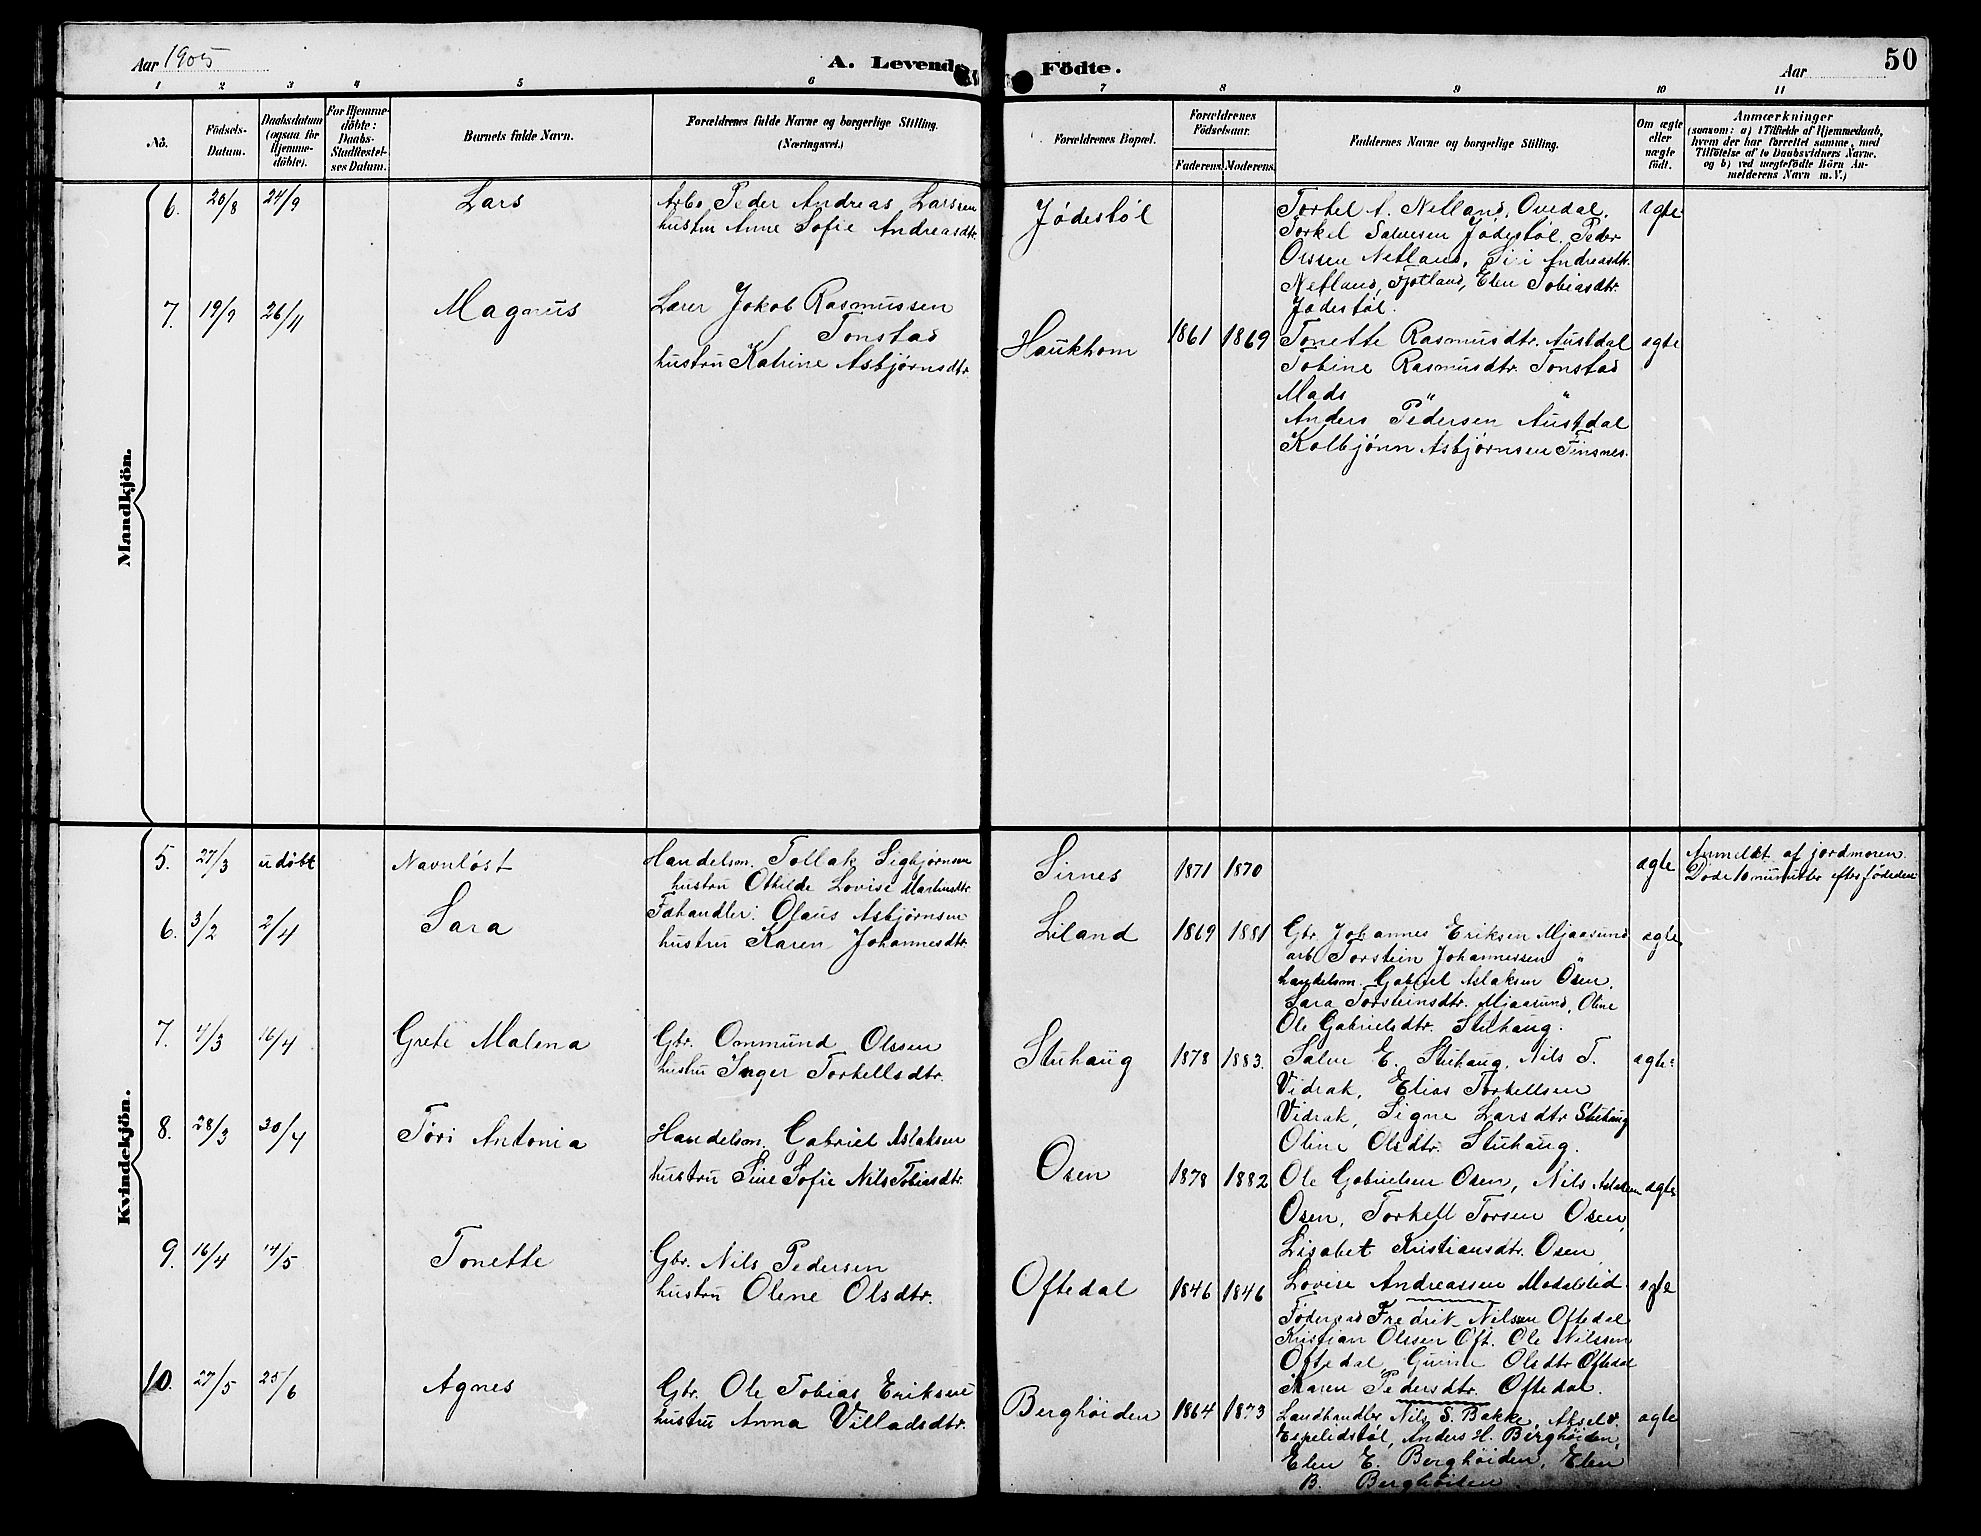 Aar 1905
A. Levende Födte.
Aar
50
1 2 3 4 5 6 7 8 9 10 11
No.
Födsels-
Datum.
Daabsdatum
(ogsaa for
Hjemme-
döbte).
For Hjemme-
döbte:
Daabs-
Stadfestel-
ses Datum.
Barnets fulde Navn.
Forældrenes fulde Navne og borgerlige Stilling.
(Næringsvei.)
Forældrenes Bopæl.
Forældrenes
Födselsaar.
Faderens. Moderens.
Faddernes Navne og borgerlige Stilling.
Om ægte
eller
uægte
födt.
Anmærkninger
(saasom: a) i Tilfælde af Hjemmedaab,
hvem der har forrettet samme, med
Tilföielse af to Daabsvidners Navne.
og b) ved uægtefödte Börn An-
melderens Navn m. V.)
Mandkjön.
6. 20/8 24/9 Lars
Arb. Peder Andreas Larssen
hustru Anne Sofie Andreasdtr.
Jødestøl
Torkel A. Netland, Ovedal,
Torkel Salvesen Jødestøl. Peder
Olssen Netland, Siri Andreasdtr.
Netland, Fjotland, Elen Tobiasdtr.
Jødestøl.
ægte
7. 19/9 26/11 Magnus
Lærer Jakob Rasmussen
Tonstad
hustru Katrine Asbjørnsdtr.
Haukhom
1861 1869
Tonette Rasmusdtr. Austdal
Tobine Rasmusdtr. Tonstad
Mads " "
Anders Pedersen Austdal
Kolbjønn Asbjørnsen Finsnes.
ægte
Kvindekjön.
5. 27/3 udöbt Navnløst
Handelsm. Tollak Sigbjørnsen
hustru Othilde Lovise Martindtr
Sirnes
1871 1870
ægte
Anmeldt af jordmoren.
Døde 10 minutter efter fødselen
6. 3/2 2/4 Sara
Fæhandler: Olaus Asbjørnsen
hustru Karen Johannesdtr.
Liland
1869 1881
Gbr. Johannes Eriksen Mjaasund
arb. Torstein Johannessen "
handelsm. Gabriel Aslaksen Osen,
Sara Torsteinsdtr. Mjaasund, Oline
Ole Gabrielsdtr. Stuhaug.
ægte
7. 4/3 16/4 Grete Malena
Gbr. Ommund Olssen
hustru Inger Torkellsdtr.
Stuhaug
1878 1883.
Salve E. Stuhaug, Nils T.
Vidrak, Elias Torkellsen
Vidrak, Signe Larsdtr Stuhaug
Oline Olsdtr. Stuhaug.
ægte
8. 28/3 30/4 Tøri Antonia
Handelsm. Gabriel Aslaksen
hustru Sine Sofie Nils Tobiasdtr.
Osen
1878 1882
Ole Gabrielsen Osen, Nils Aslaksen
Osen, Torkell Torsen Osen,
Lisabet Kristiansdtr. Osen,
Lovise Andreassen Modalslid.
ægte
9. 16/4 14/5 Tonette
Gbr. Nils Pedersen
hustru Olene Olsdtr.
Oftedal
1846 1846
Føderaad Fredrik Nilsen Oftedal
Kristian Olssen Oft. Ole Nilssen
Oftedal, Gurine Olsdtr Oftedal
Karen Pedersdtr. Oftedal.
ægte
10. 27/5 25/6 Agnes
Gbr. Ole Tobias Eriksen
hustru Anna Villadsdtr.
Berghöiden
1864 1873
Landhandler Nils S. Bakke, Aksel v.
Espelidstøl, Anders H. Berghöiden,
Elen E. Berghöiden, Elen
B. Berghöiden
ægte